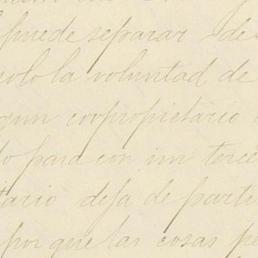 puede separar de
solo la voluntad de
gun copropietario
do para con un terce
tario deja de parti
por que las cosas pe